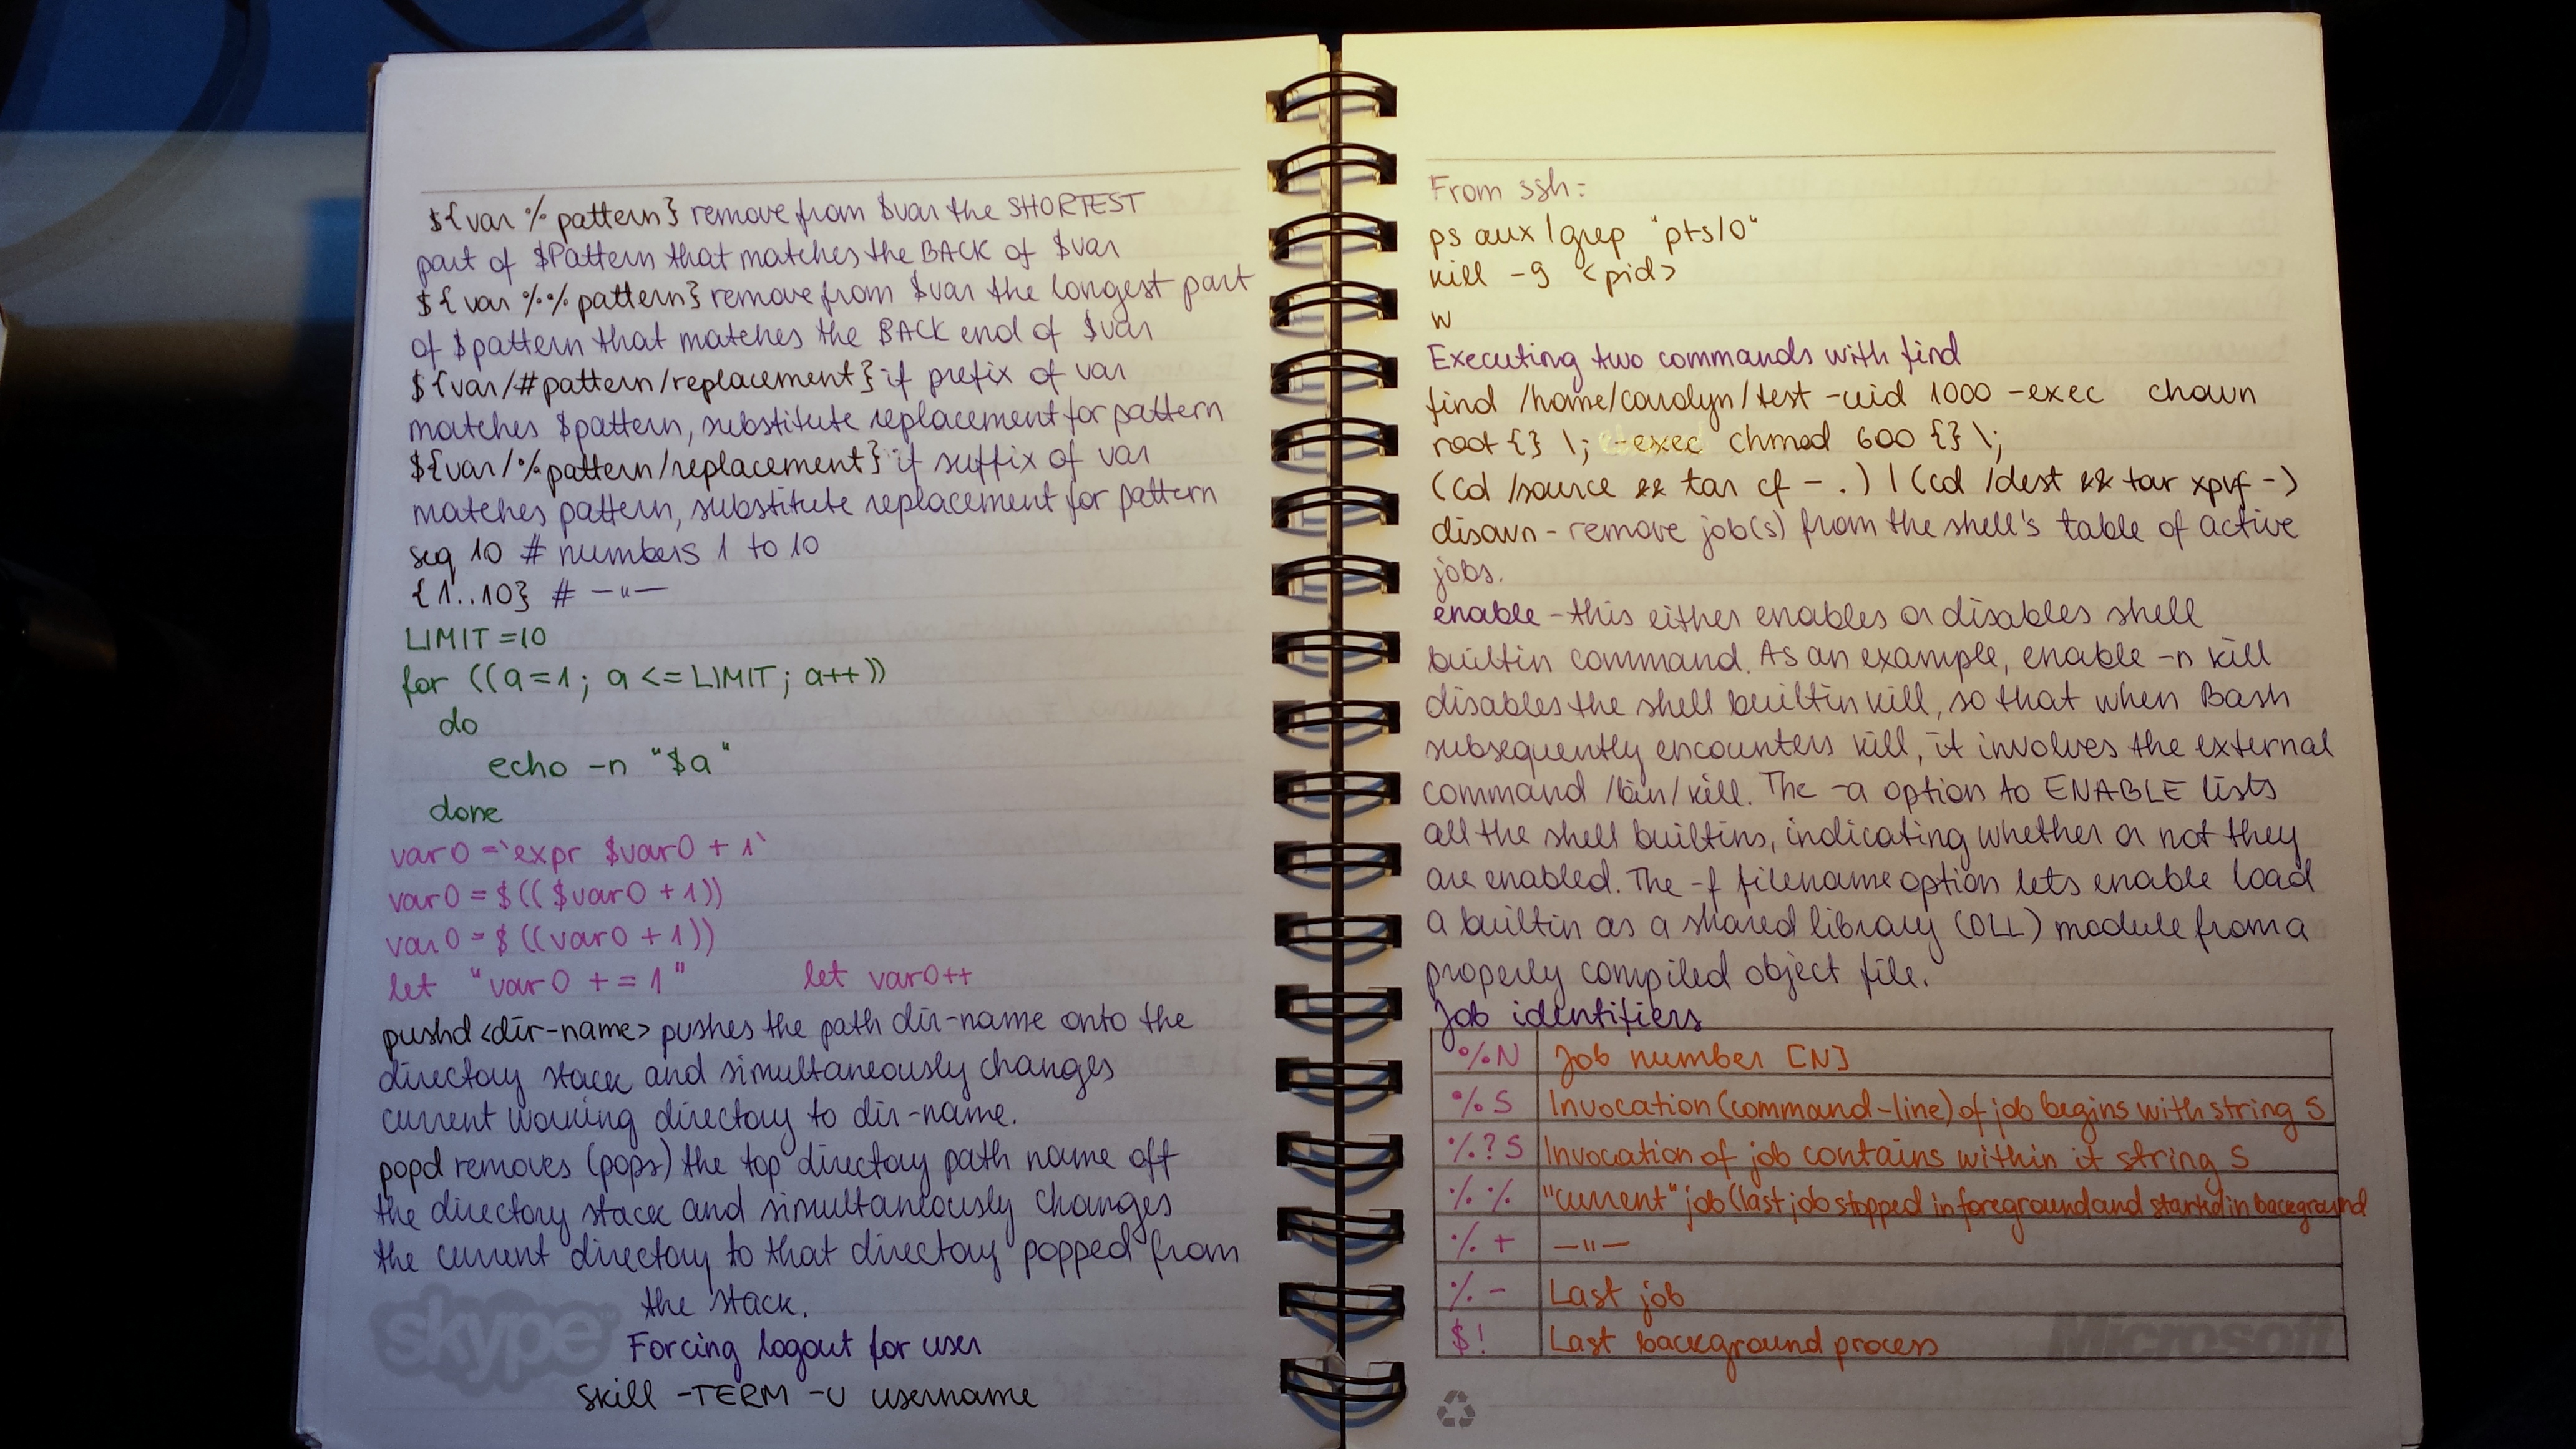 ${var%pattern} remove from $var the SHORTEST
part of $Pattern that matches the BACK of $var
${var%%pattern} remove from $var the longest part
of $pattern that matches the BACK end of $var
${var/#pattern/replacement} if prefix of var
matches $pattern, substitute replacement for pattern
${var/%pattern/replacement} if suffix of var
matches pattern, substitute replacement for pattern
seq 10 # numbers 1 to 10
{1..10} # —"—
LIMIT=10
for ((a=1; a <= LIMIT; a++))
do
echo -n "$a"
done
var0=`expr $var0 + 1`
var0 = $(($var0 + 1))
var0 = $((var0 + 1))
let "var0 += 1" let var0++
pushd <dir-name> pushes the path dir-name onto the
directory stack and simultaneously changes
current working directory to dir-name.
popd removes (pops) the top directory path name off
the directory stack and simultaneously changes
the current directory to that directory popped from
the stack.
Forcing logout for user
skill -TERM -u username
skype
From ssh:
ps aux | grep "pts/0"
kill -9 <pid>
w
Executing two commands with find
find /home/carolyn/test -uid 1000 -exec chown
root {} \; -exec chmod 600 {} \;
(cd /source && tar cf - .) | (cd /dest && tar xpvf -)
disown - remove job(s) from the shell's table of active
jobs.
enable - this either enables or disables shell
builtin command. As an example, enable -n kill
disables the shell builtin kill, so that when Bash
subsequently encounters kill, it involves the external
command /bin/kill. The -a option to ENABLE lists
all the shell builtins, indicating whether or not they
are enabled. The -f filename option lets enable load
a builtin as a shared library (DLL) module from a
properly compiled object file.
Job identifiers
%N Job number [N]
%S Invocation (command-line) of job begins with string S
%?S Invocation of job contains within it string S
%% "current" job (last job stopped in foreground and started in background
%+ —"—
%- Last job
$! Last background process
Microsoft